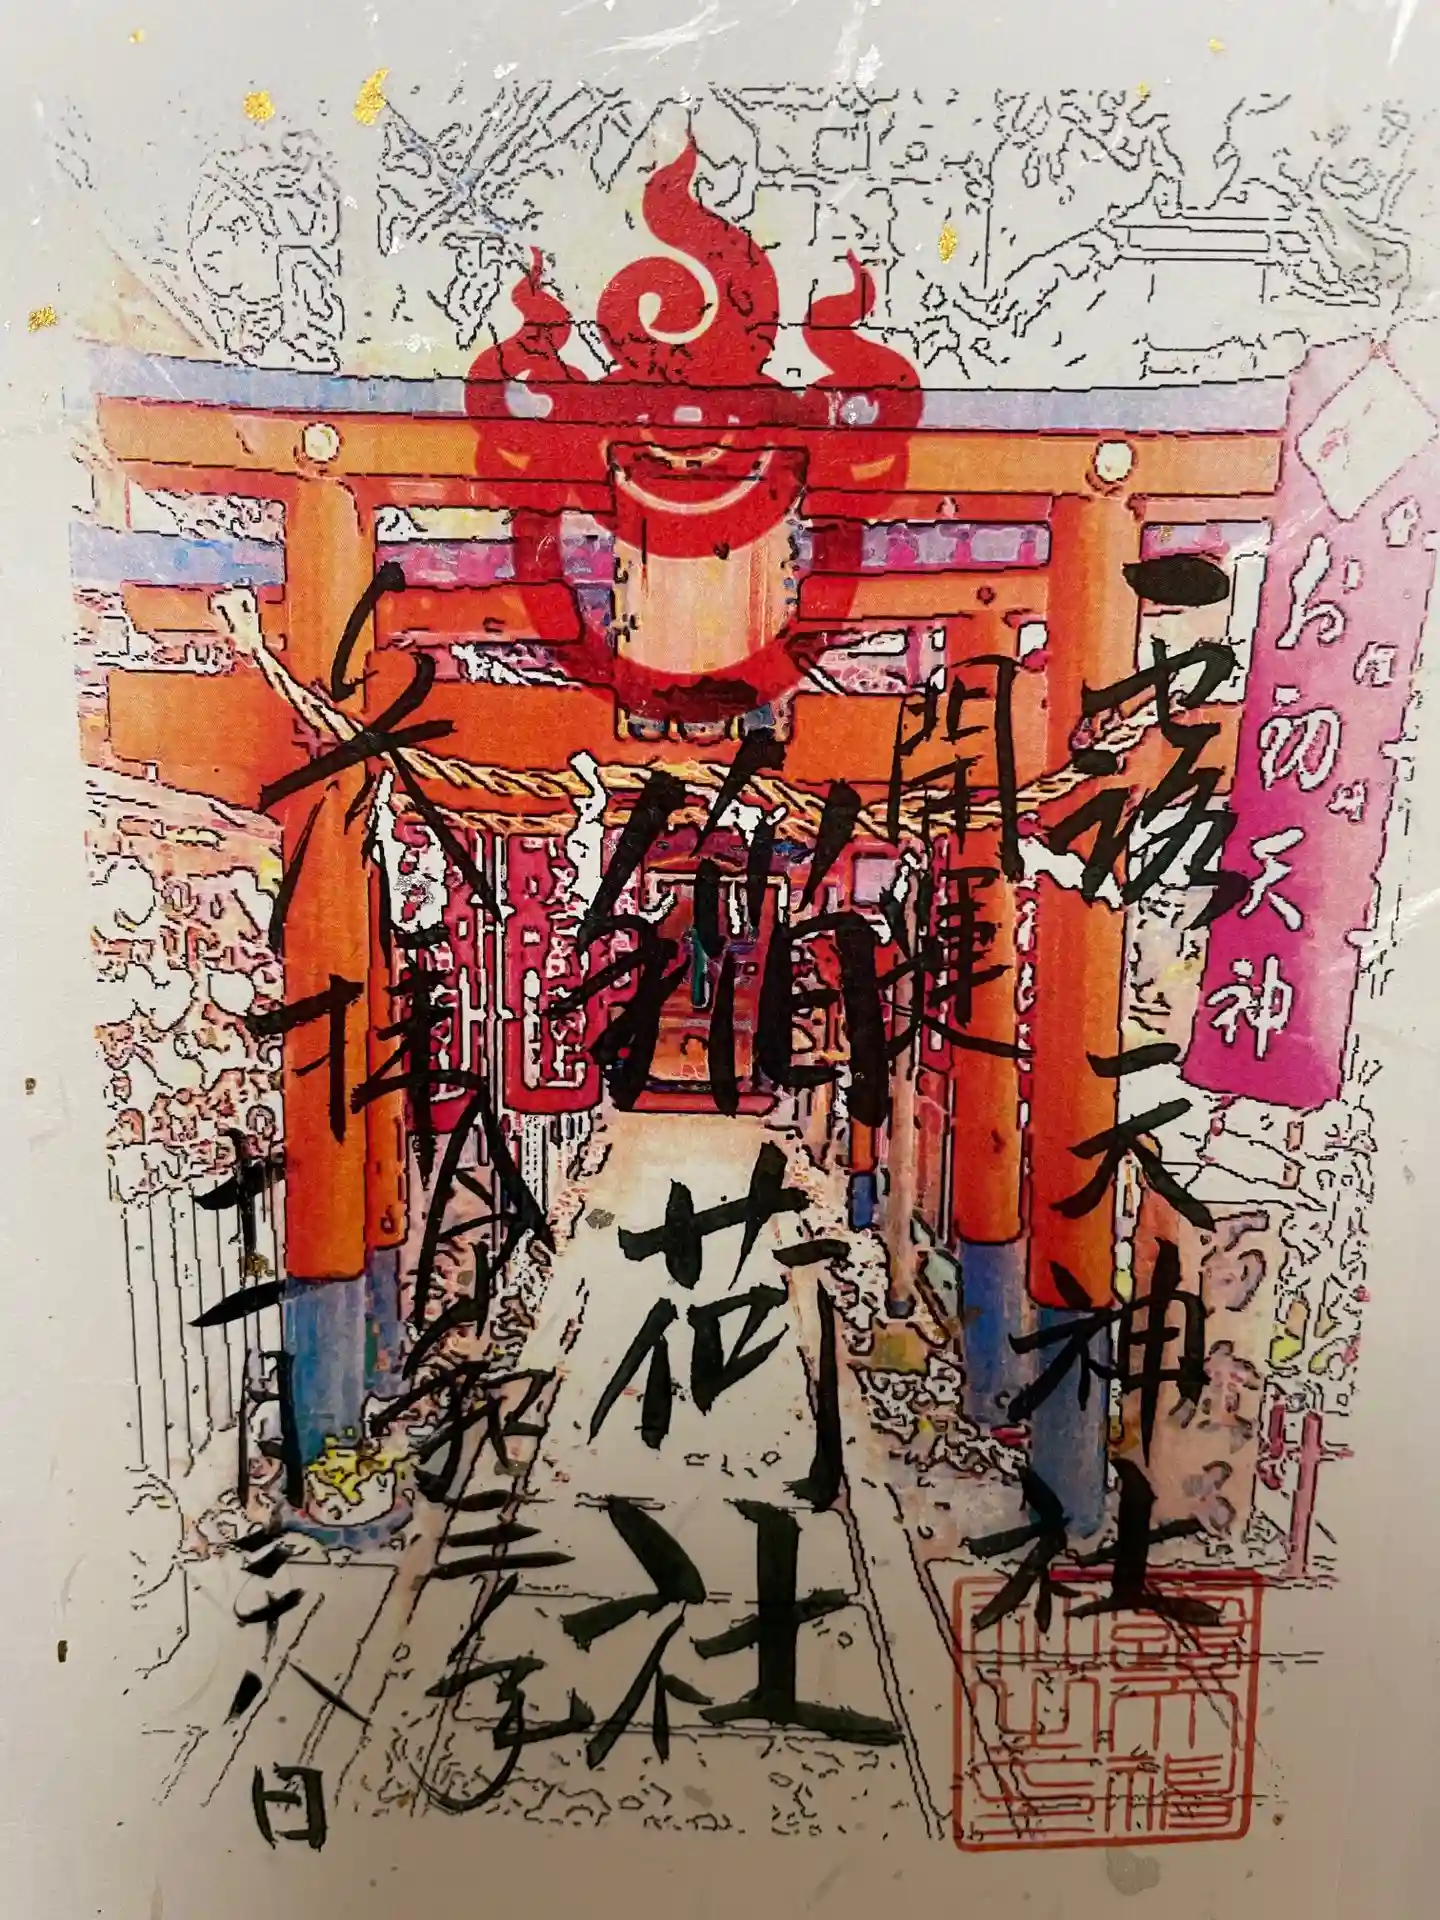 露天神社
開運
稲荷社
奉拝 令和三年
十二月二十八日
お初天神